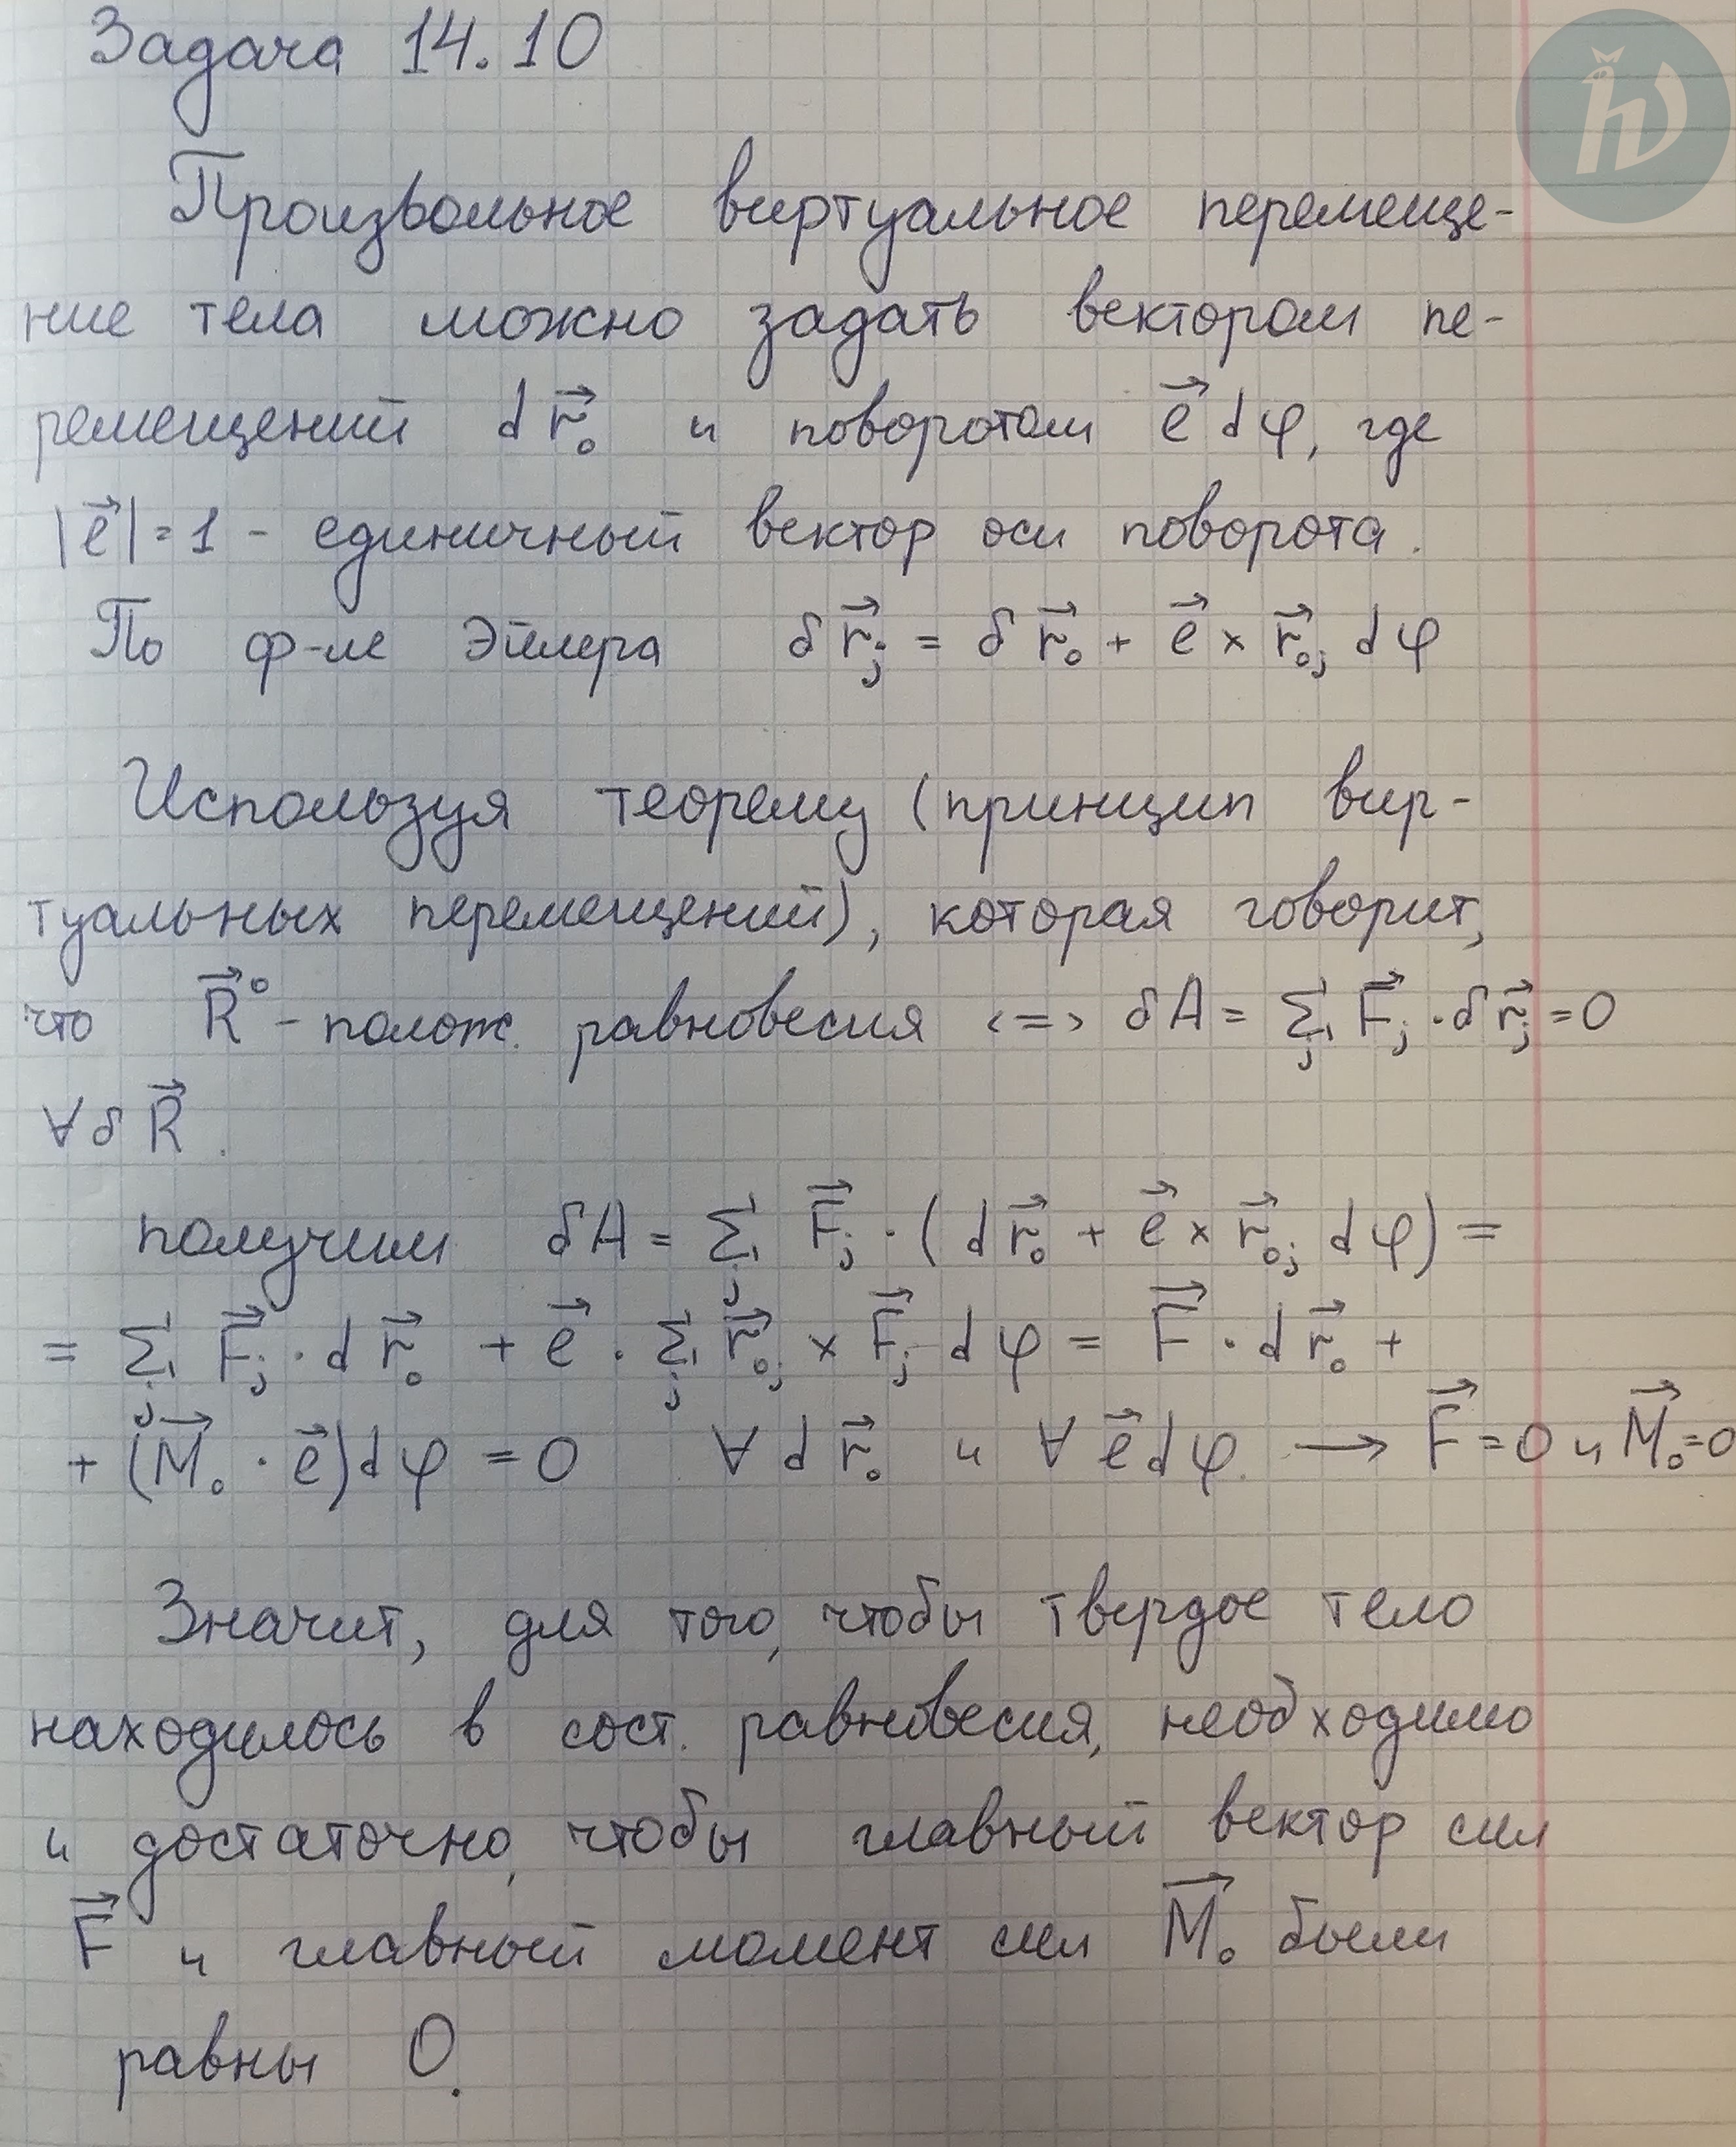 Задача 14.10
Произвольное виртуальное перемеще-
ние тела можно задать вектором пе-
ремещений d r⃗₀ и поворотом e⃗ dφ, где
|e⃗| = 1 - единичный вектор оси поворота.
По ф-ле Эйлера δr⃗ⱼ = δr⃗₀ + e⃗ × r⃗₀ⱼ dφ
Используя теорему (принцип вир-
туальных перемещений), которая говорит,
что R⃗⁰ - полож. равновесия <=> δA = Σⱼ F⃗ⱼ · δr⃗ⱼ = 0
∀ δR⃗.
получим δA = Σⱼ F⃗ⱼ · (d r⃗₀ + e⃗ × r⃗₀ⱼ dφ) =
= Σⱼ F⃗ⱼ · d r⃗₀ + e⃗ · Σⱼ r⃗₀ⱼ × F⃗ⱼ dφ = F⃗ · d r⃗₀ +
+ (M⃗₀ · e⃗) dφ = 0 ∀ d r⃗₀ и ∀ e⃗ dφ. → F⃗ = 0 и M⃗₀ = 0
Значит, для того, чтобы твердое тело
находилось в сост. равновесия, необходимо
и достаточно, чтобы главный вектор сил
F⃗ и главный момент сил M⃗₀ были
равны 0.